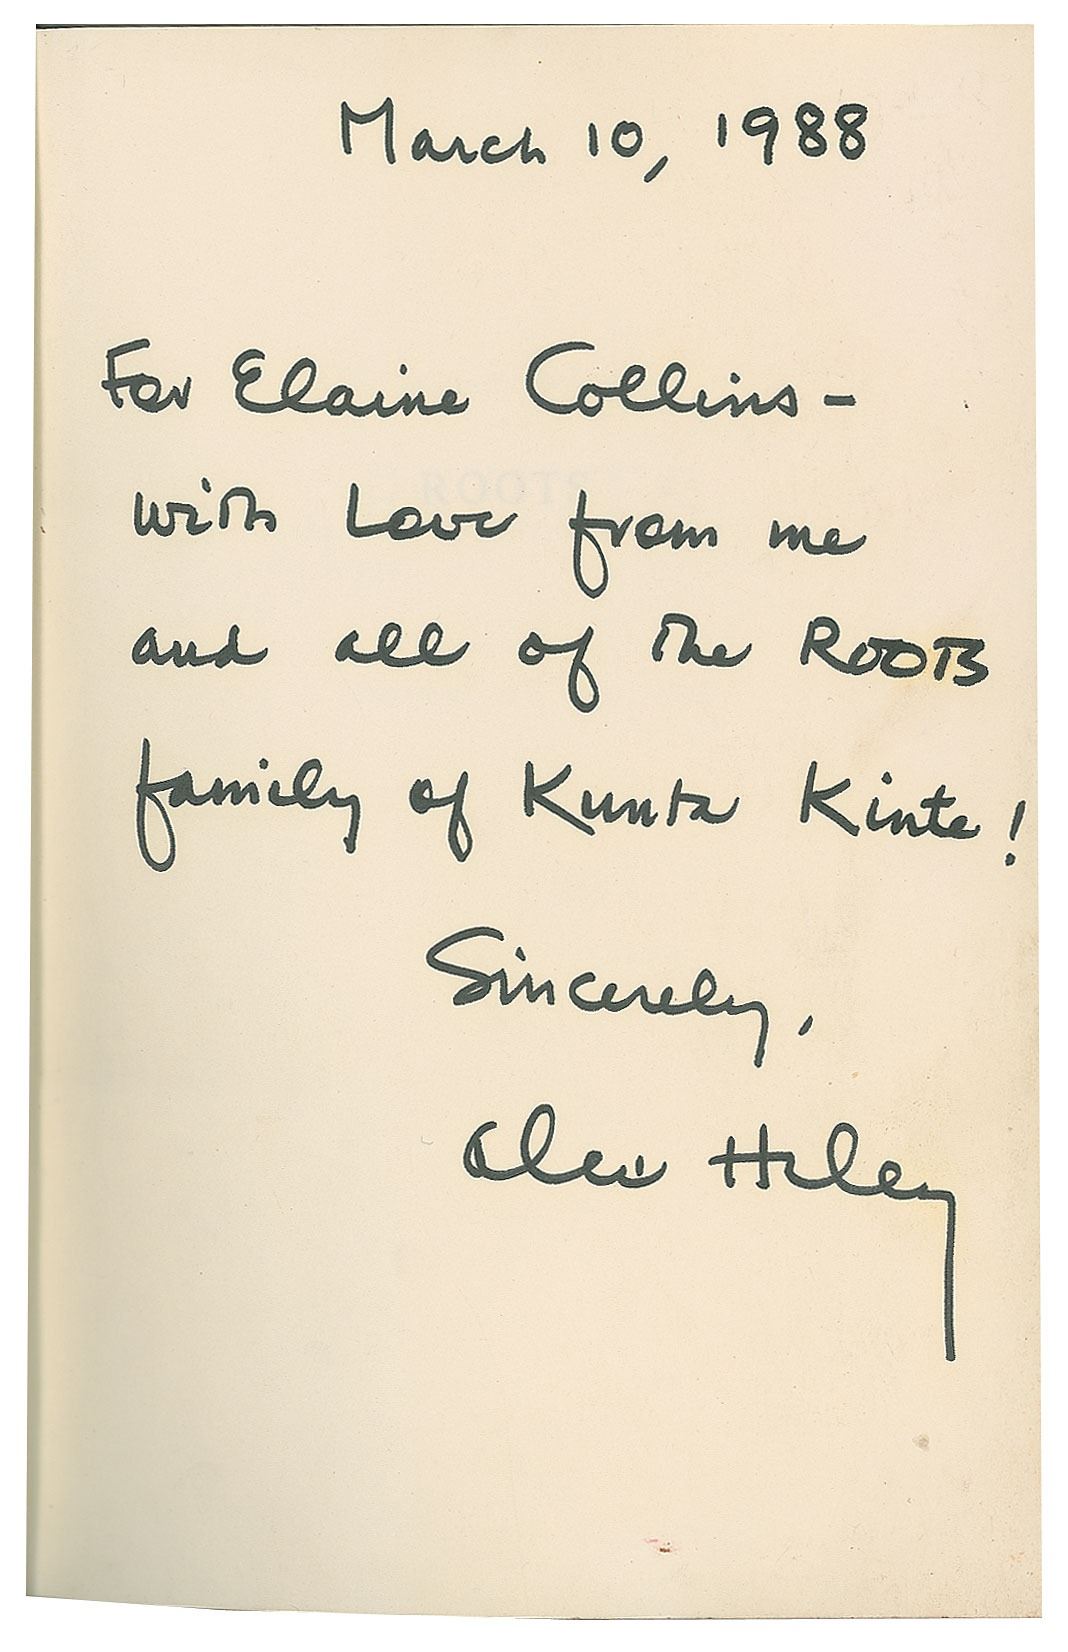 March 10, 1988
For Elaine Collins –
with Love from me
ROOTS
and all of the ROOTS
family of Kunta Kinte!
Sincerely,
Alex Haley